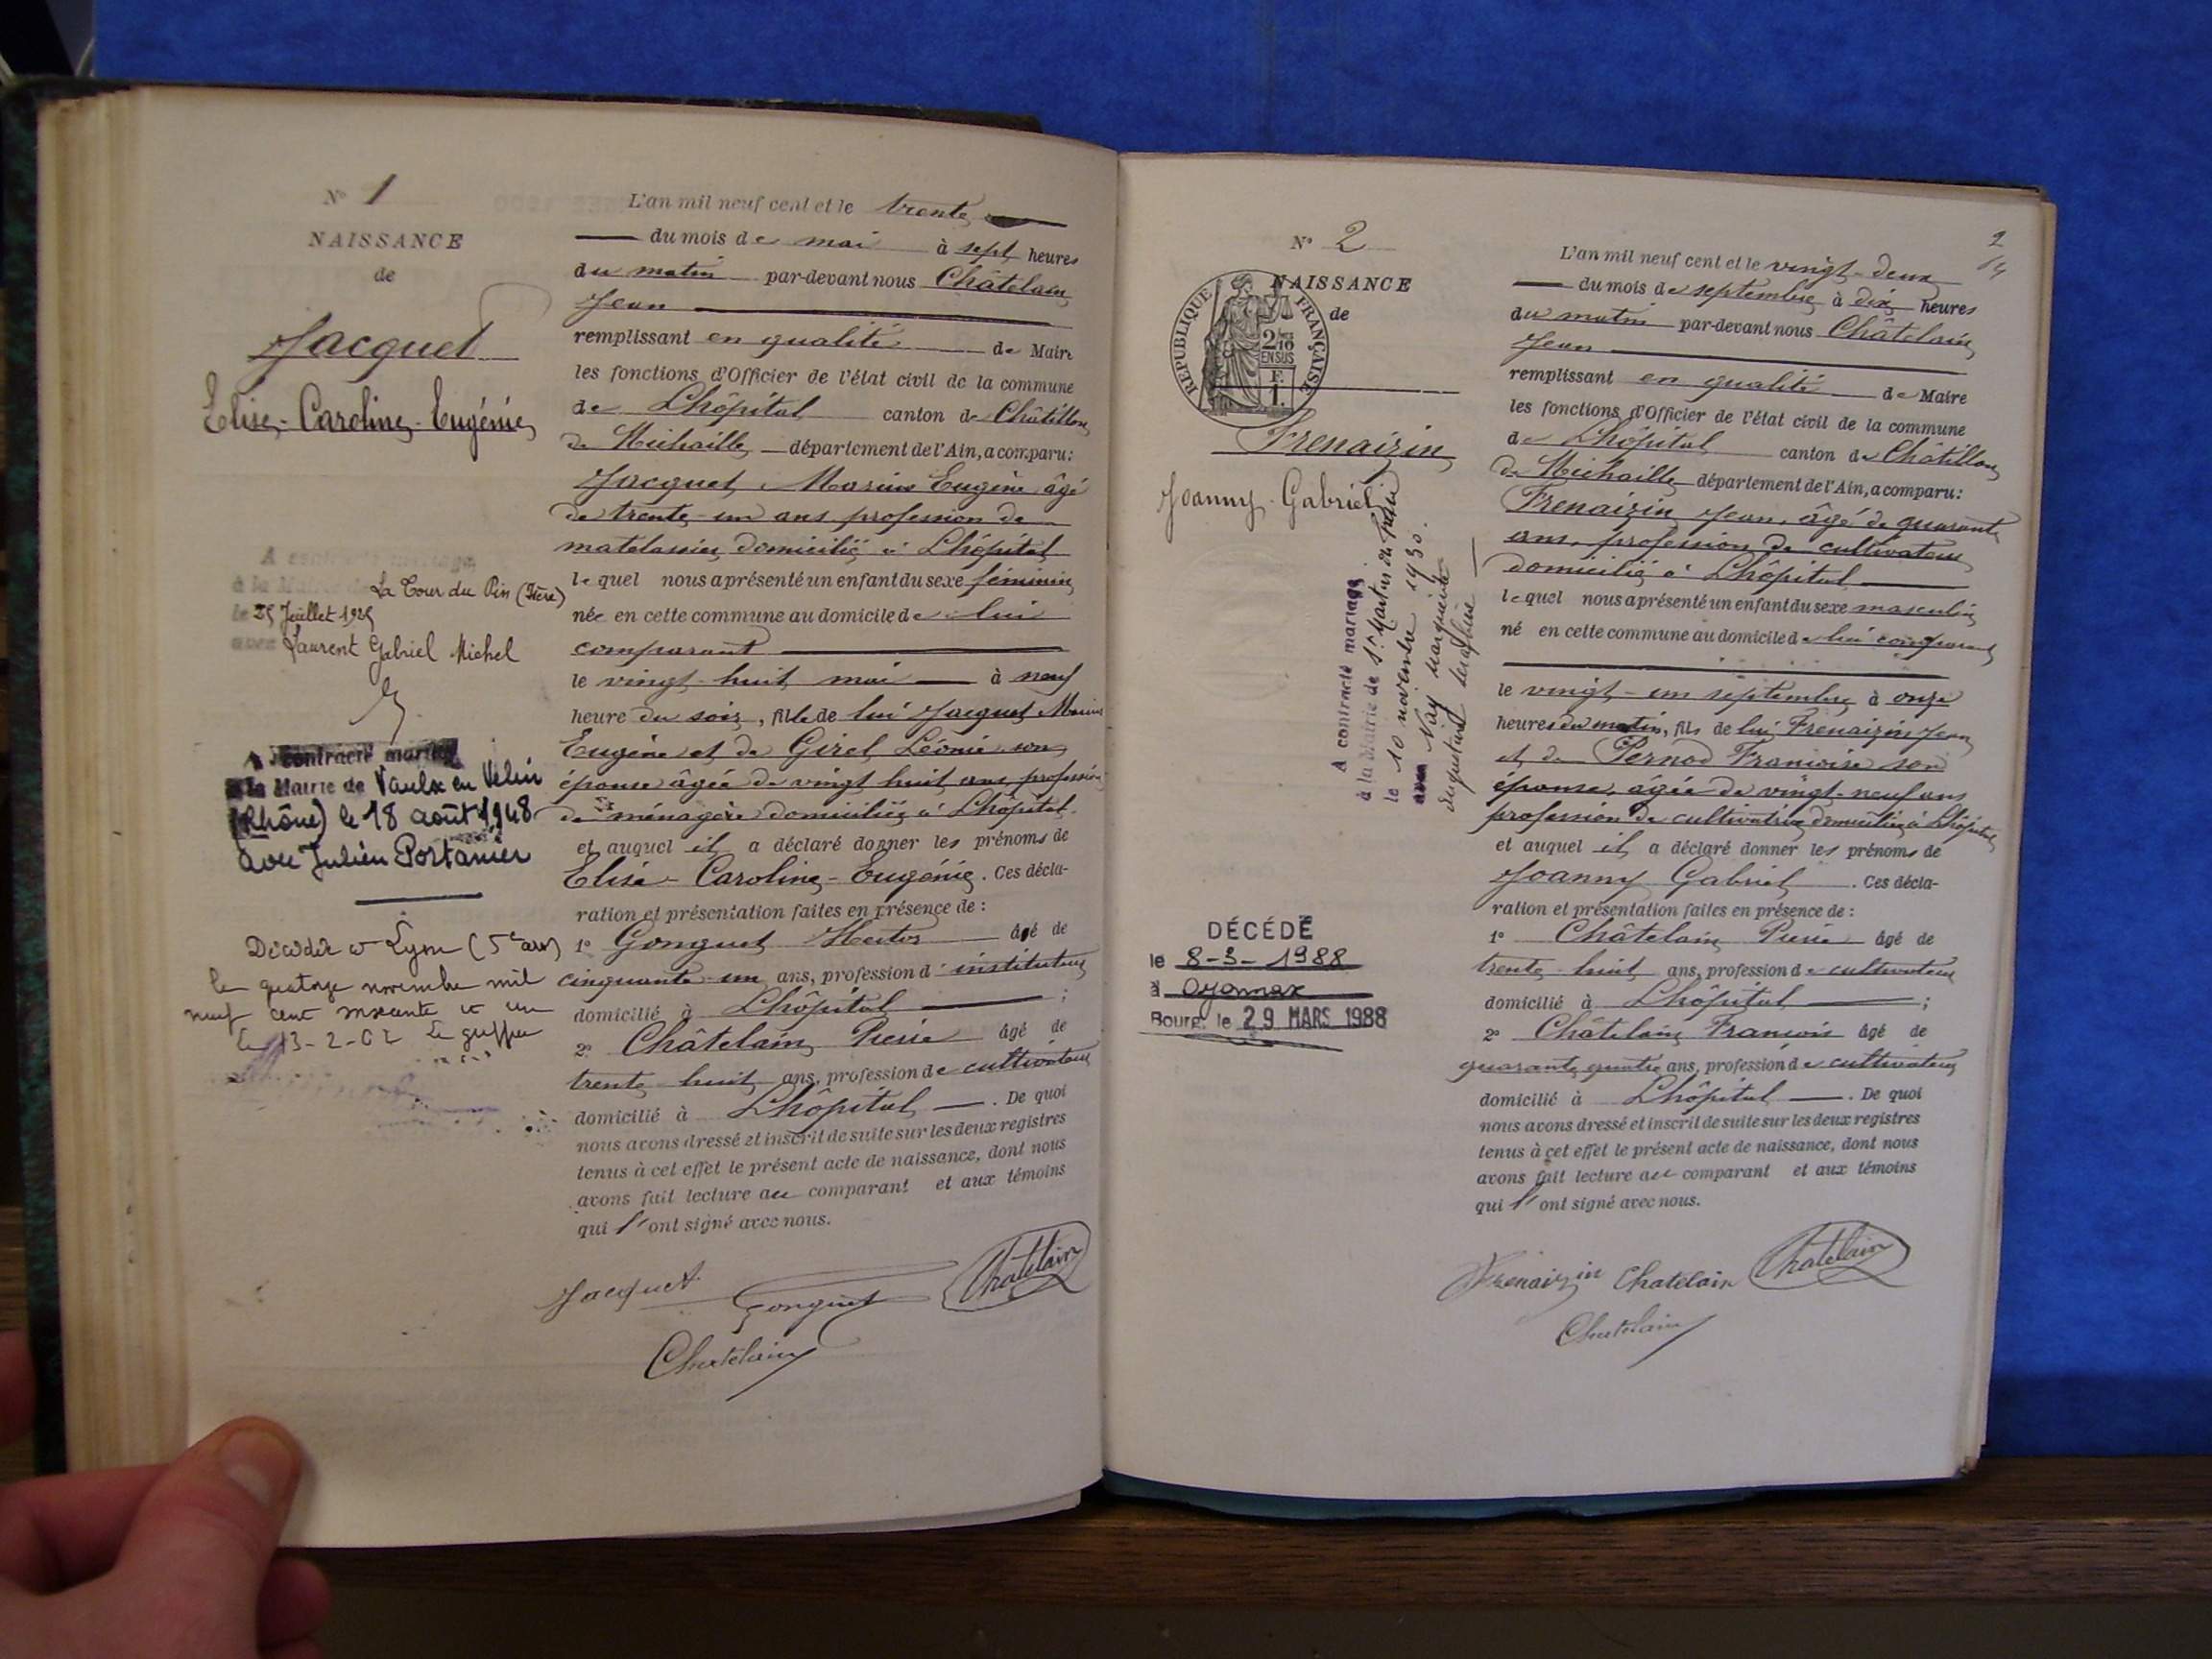 N° 1
NAISSANCE
de
Jacquet
Elise - Caroline - Eugénie
A contracté mariage
à la Mairie de La Tour du Pin (Isère)
le 25 Juillet 1925
avec Laurent Gabriel Michel
A contracté mariage
à la Mairie de Vaulx en Velin
(Rhône) le 18 août 1948
avec Julien Portanier
Décédée à Lyon (5e arr)
le quatorze novembre mil
neuf cent soixante et un
Le 13-2-62 Le greffier
L'an mil neuf cent et le trente
du mois de mai à sept heures
du matin par-devant nous Châtelain
Jean
remplissant en qualité de Maire
les fonctions d'Officier de l'état civil de la commune
de Lhôpital canton de Châtillon
de Michaille département de l'Ain, a comparu:
Jacquet Marius Eugène âgé
de trente-un ans profession de
matelassier domicilié à Lhôpital
lequel nous a présenté un enfant du sexe féminin
née en cette commune au domicile de lui
comparant
le vingt-huit mai à neuf
heure du soir, fille de lui Jacquet Marius
Eugène et de Girel Léonie son
épouse âgée de vingt huit ans profession
de ménagère domiciliée à Lhôpital.
et auquel il a déclaré donner les prénoms de
Elisa - Caroline - Eugénie. Ces décla-
ration et présentation faites en présence de :
1° Gonguet Hector âgé de
cinquante-un ans, profession d'instituteur
domicilié à Lhôpital ;
2° Châtelain Pierre âgé de
trente huit ans, profession de cultivateur
domicilié à Lhôpital . De quoi
nous avons dressé et inscrit de suite sur les deux registres
tenus à cet effet le présent acte de naissance, dont nous
avons fait lecture au comparant et aux témoins
qui l'ont signé avec nous.
Jacquet Gonguet Chatelain
Chatelain
2
N° 2
NAISSANCE
de
RÉPUBLIQUE FRANÇAISE
2/10
EN SUS
F.
1.
Frenaizin
Joanny Gabriel
A contracté mariage
à la Mairie de St Martin du Frêne
le 10 novembre 1930.
avec Nay Marguerite
Augustine Séraphine
DÉCÉDÉ
le 8-3-1988
à Oyonnax
Bourg, le 29 MARS 1988
L'an mil neuf cent et le vingt-deux
du mois de septembre à dix heures
du matin par-devant nous Châtelain
Jean
remplissant en qualité de Maire
les fonctions d'Officier de l'état civil de la commune
de Lhôpital canton de Châtillon
de Michaille département de l'Ain, a comparu:
Frenaizin Jean, âgé de quarante
ans, profession de cultivateur
domicilié à Lhôpital
lequel nous a présenté un enfant du sexe masculin
né en cette commune au domicile de lui comparant
le vingt-un septembre à onze
heures du matin, fils de lui Frenaizin Jean
et de Pernod Francoise son
épouse, âgée de vingt-neuf ans
profession de cultivatrice domiciliée à Lhôpital
et auquel il a déclaré donner les prénoms de
Joanny Gabriel . Ces décla-
ration et présentation faites en présence de :
1° Châtelain Pierre âgé de
trente-huit ans, profession de cultivateur
domicilié à Lhôpital ;
2° Châtelain Francois âgé de
quarante quatre ans, profession de cultivateur
domicilié à Lhôpital . De quoi
nous avons dressé et inscrit de suite sur les deux registres
tenus à cet effet le présent acte de naissance, dont nous
avons fait lecture au comparant et aux témoins
qui l'ont signé avec nous.
Frenaizin Chatelain Chatelain
Chatelain